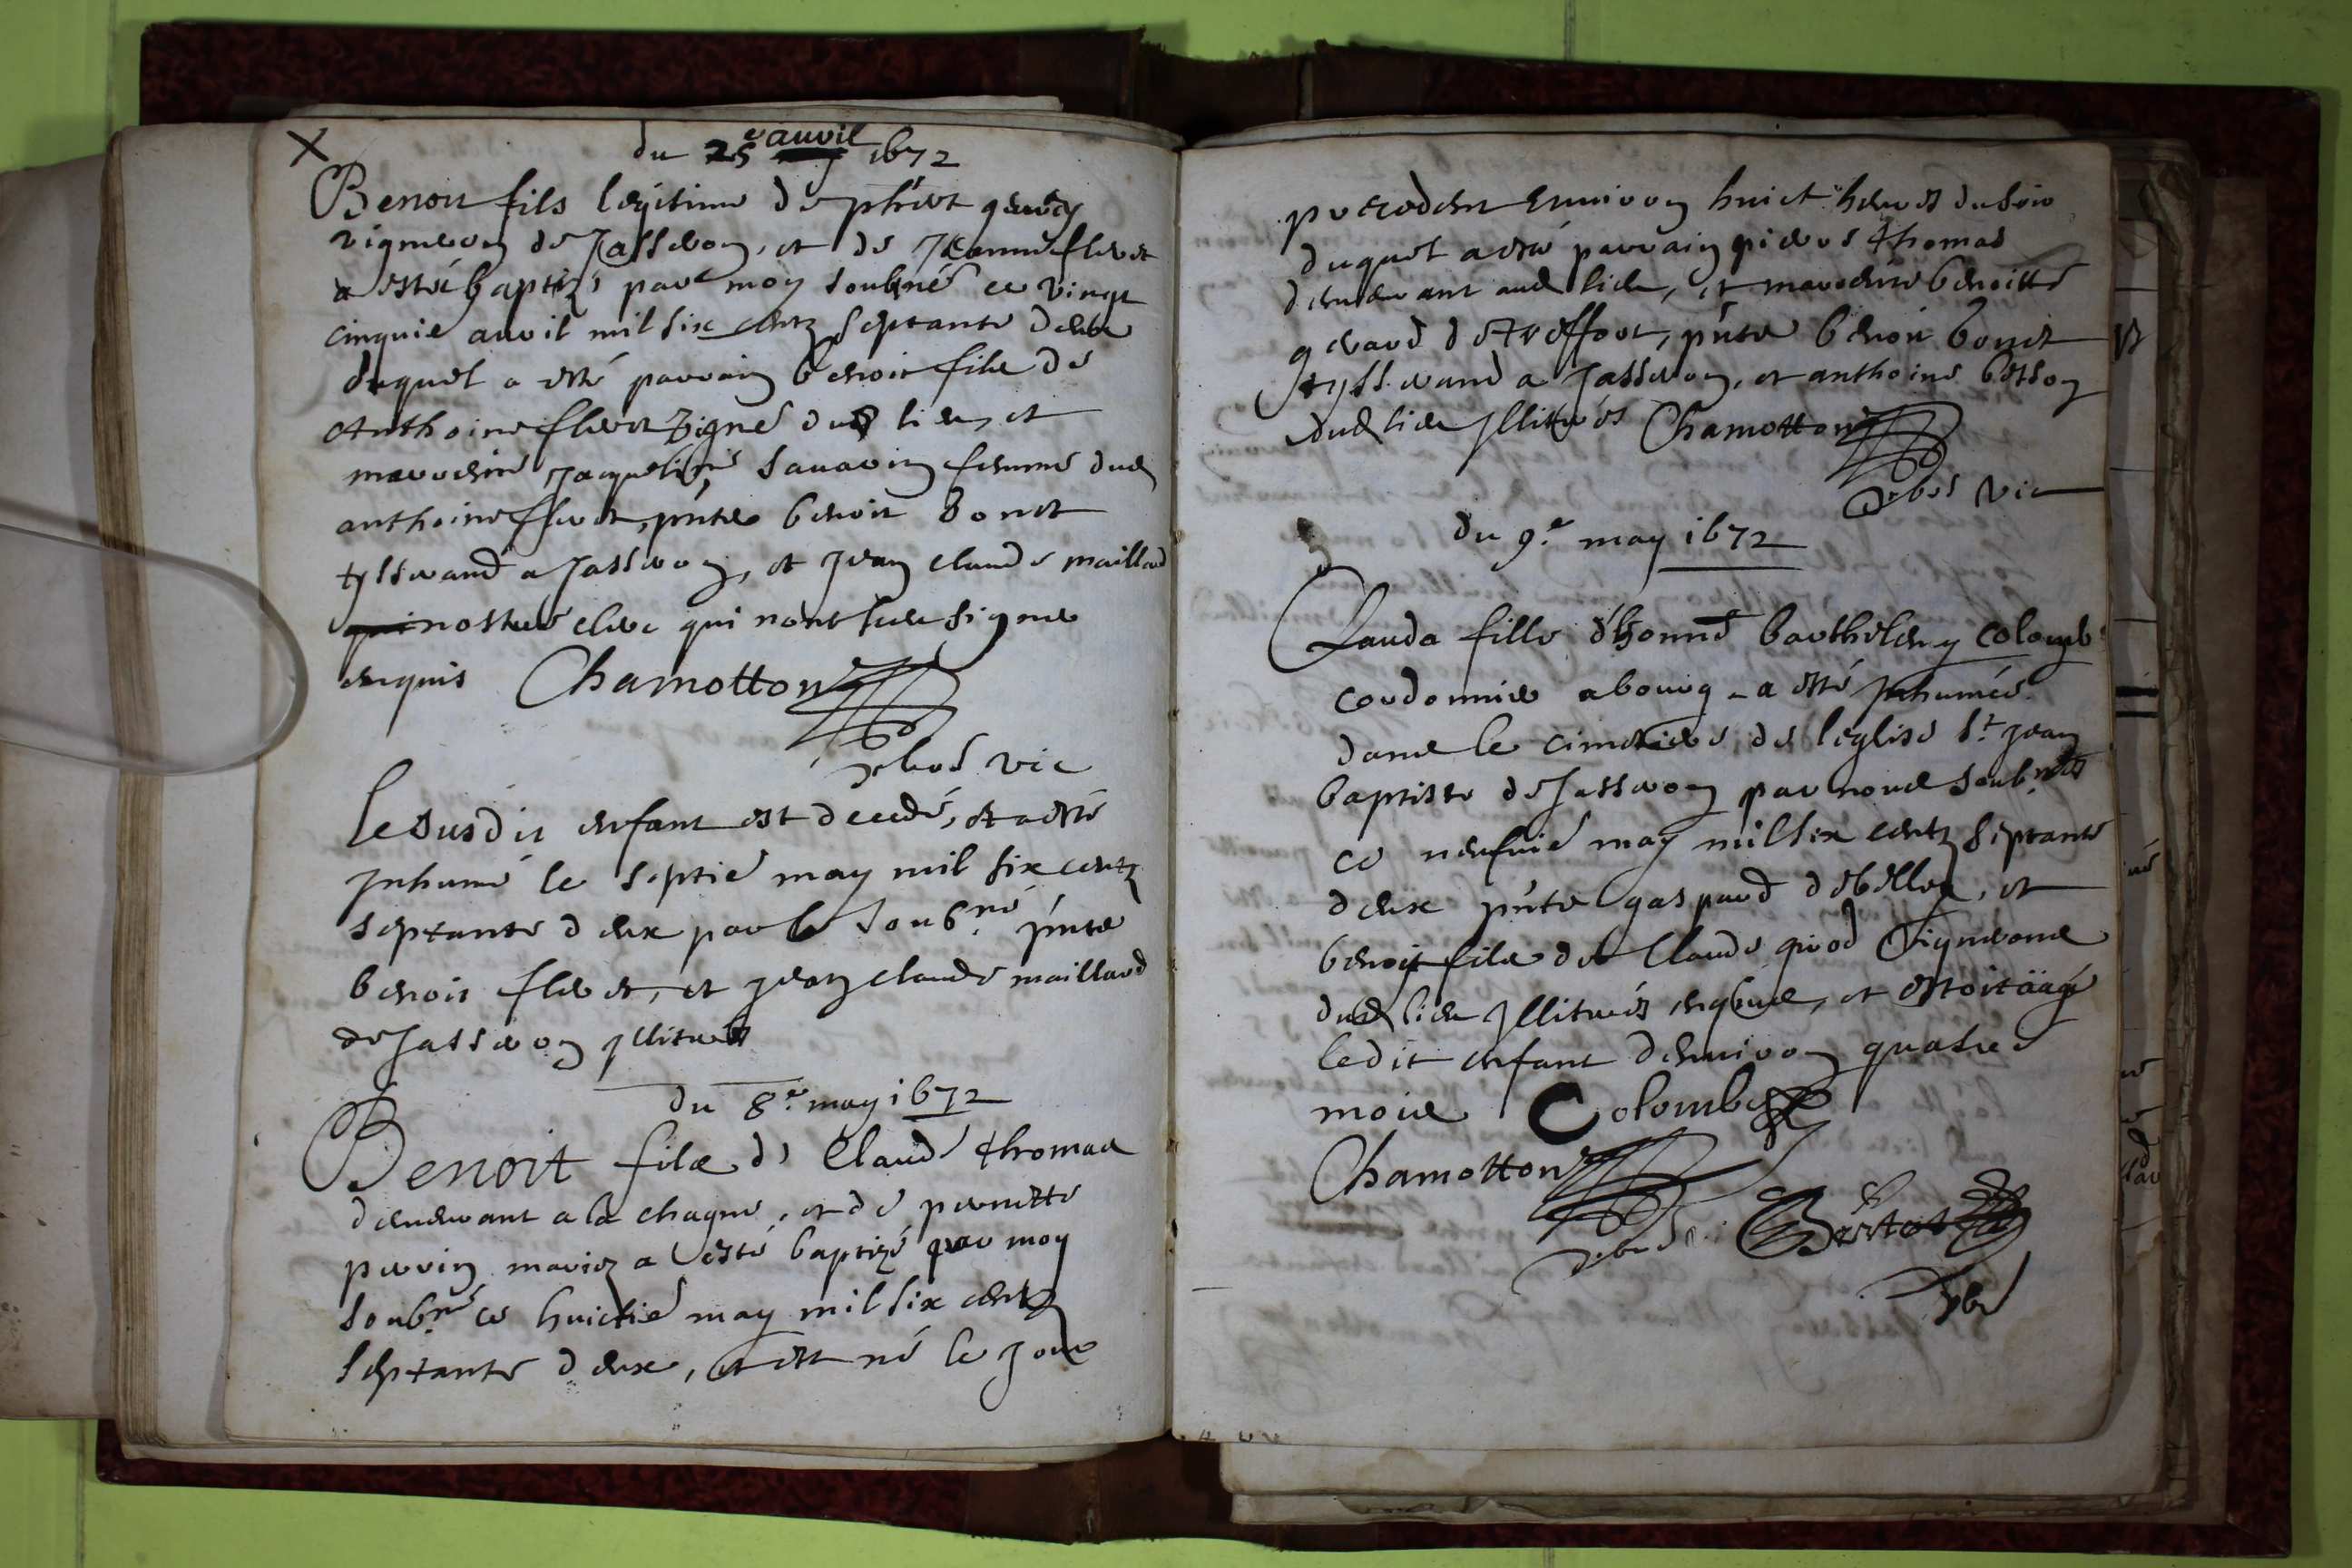 du 25e auril 1672
Benoit fils legitime de phi'ert
vigneron de Jasseron, et de Jeanne fleret
a esté baptizé par moy soubsné ce vingt
cinquie auril mil six centz septante deux
duquel a esté parrain benoit fils de
Anthoine fleret vigné dud lieu, et
marreine Jacqueline sauarin femme dud
anthoine fleret, pnts benoit bonet
tysserand a Jasseron, et Jean claude maillard
nostre clerc qui n'ont sceu signer
enquis Chamotton
vic
Le susdit enfant est decedé, et a esté
Inhumé le septie may mil six centz
septante deux par le soub.né pnts
benoit fleret, et Jean claude maillard
de Jasseron Illiterés
du 8.e may 1672
Benoit fils de Claude thomas
demeurant a la chagne, et de pernette
perrin mariez a esté baptizé par moy
soub.né ce huictie may mil six centz
septante deux, et est né le jour
precedent enuiron huict heures du soir
duquel a esté parrain pierre thomas
demeurant aud lieu, et marreine benoitte
gerard de treffort, pnts benoit bonet
tysserand a Jasseron, et anthoine besson
dud lieu Illiterés Chamotton
vic
du 9.e may 1672
Clauda fille d'honné barthelemy colomb
cordonnier a bourg a esté Inhumée
dans le cimetiere de l'eglise St Jean
baptiste de Jasseron par nous soub.nés
ce neufuie may mil six centz septante
deux pnts gaspard debellex, et
benoit fils de Claude piod vignerons
dud lieu Illiterés enquis, et estoit aagé
ledit enfant d'enuiron quatre
mois Colomb
Chamotton
Bertet